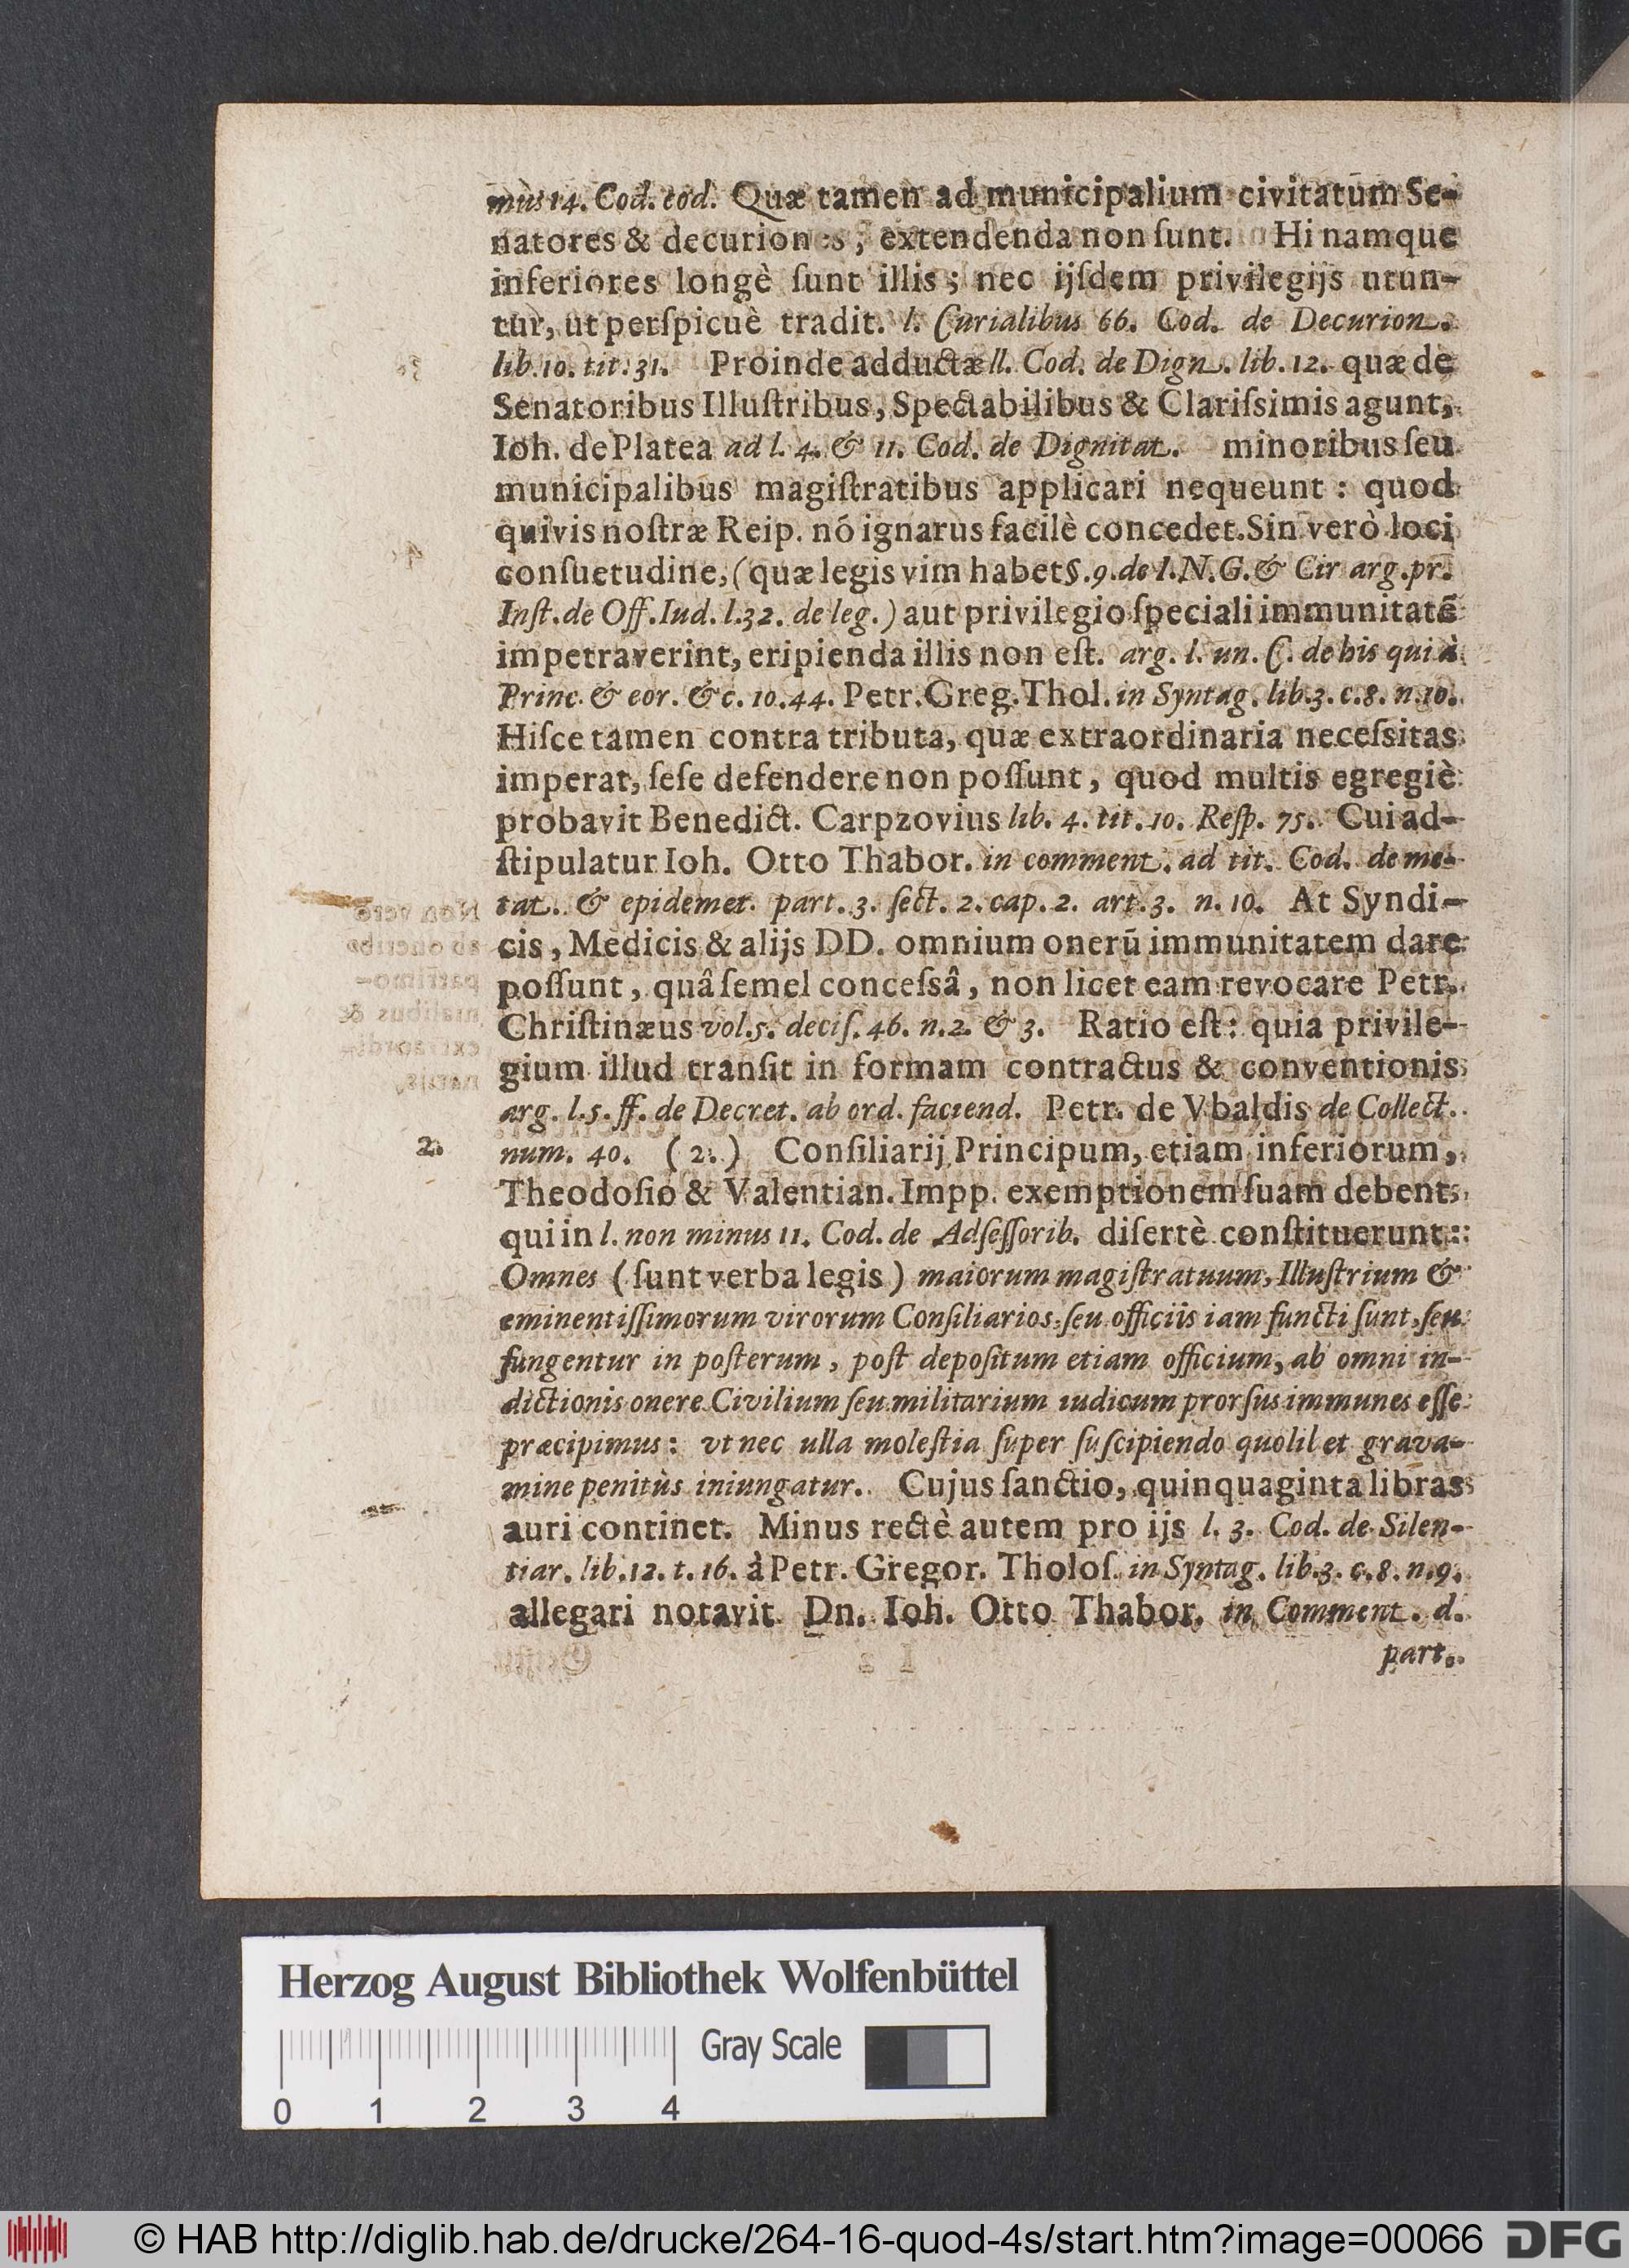 mùs 14. Cod. eod. Quæ tamen ad municipalium civitatum Se-
natores & decuriones, extendenda non ſunt. Hi namque
inferiores longè ſunt illis; nec ijſdem privilegijs utun-
tur, ut perſpicuè tradit. l. Curialibus 66. Cod. de Decurion.
lib. 10. tit. 31. Proinde adductæ ll. Cod. de Dign. lib. 12. quæ de
Senatoribus Illuſtribus, Spectabilibus & Clariſsimis agunt,
Ioh. de Platea ad l. 4. & 11. Cod. de Dignitat. minoribus ſeu
municipalibus magiſtratibus applicari nequeunt : quod
quivis noſtræ Reip. nó ignarus facilè concedet. Sin verò loci
conſuetudine, (quæ legis vim habet §. 9. de I. N. G. & Cir arg. pr.
Inſt. de Off. Iud. l. 32. de leg.) aut privilegio ſpeciali immunitatē
impetraverint, eripienda illis non eſt. arg. l. un. C. de his qui à
Princ. & eor. &c. 10. 44. Petr. Greg. Thol. in Syntag. lib. 3. c. 8. n. 10.
Hiſce tamen contra tributa, quæ extraordinaria neceſsitas
imperat, ſeſe defendere non poſſunt, quod multis egregiè
probavit Benedict. Carpzovius lib. 4. tit. 10. Reſp. 75. Cui ad-
ſtipulatur Ioh. Otto Thabor. in comment. ad tit. Cod. de me-
tat. & epidemet. part. 3. ſect. 2. cap. 2. art. 3. n. 10. At Syndi-
cis, Medicis & alijs DD. omnium onerū immunitatem dare
poſſunt, quâ ſemel conceſsâ, non licet eam revocare Petr.
Chriſtinæus vol. 5. deciſ. 46. n. 2. & 3. Ratio eſt: quia privile-
gium illud tranſit in formam contractus & conventionis
arg. l. 5. ff. de Decret. ab ord. faciend. Petr. de Vbaldis de Collect.
2. num. 40. (2.) Conſiliarij Principum, etiam inferiorum,
Theodoſio & Valentian. Impp. exemptionem ſuam debent,
qui in l. non minus 11. Cod. de Adſeſſorib. diſertè conſtituerunt:
Omnes (ſunt verba legis) maiorum magiſtratuum, Illuſtrium &
eminentiſſimorum virorum Conſiliarios, ſeu officiis iam functi ſunt, ſeu
fungentur in poſterum, poſt depoſitum etiam officium, ab omni in-
dictionis onere Civilium ſeu militarium iudicum prorſus immunes eſſe
præcipimus: vt nec ulla moleſtia ſuper ſuſcipiendo quolilet grava-
mine penitùs iniungatur. Cujus ſanctio, quinquaginta libras
auri continet. Minus rectè autem pro ijs l. 3. Cod. de Silen-
tiar. lib. 12. t. 16. à Petr. Gregor. Tholoſ. in Syntag. lib. 3. c. 8. n. 9.
allegari notavit Dn. Ioh. Otto Thabor. in Comment. d.
part.
Herzog August Bibliothek Wolfenbüttel
Gray Scale
0 1 2 3 4
© HAB http://diglib.hab.de/drucke/264-16-quod-4s/start.htm?image=00066 DFG